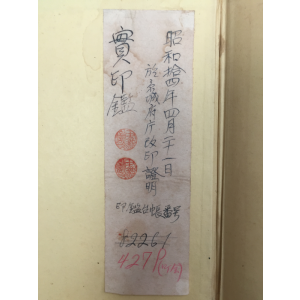 昭和拾四年四月二十一日
於京城府庁改印證明
實印鑑
印鑑台帳番号
82261